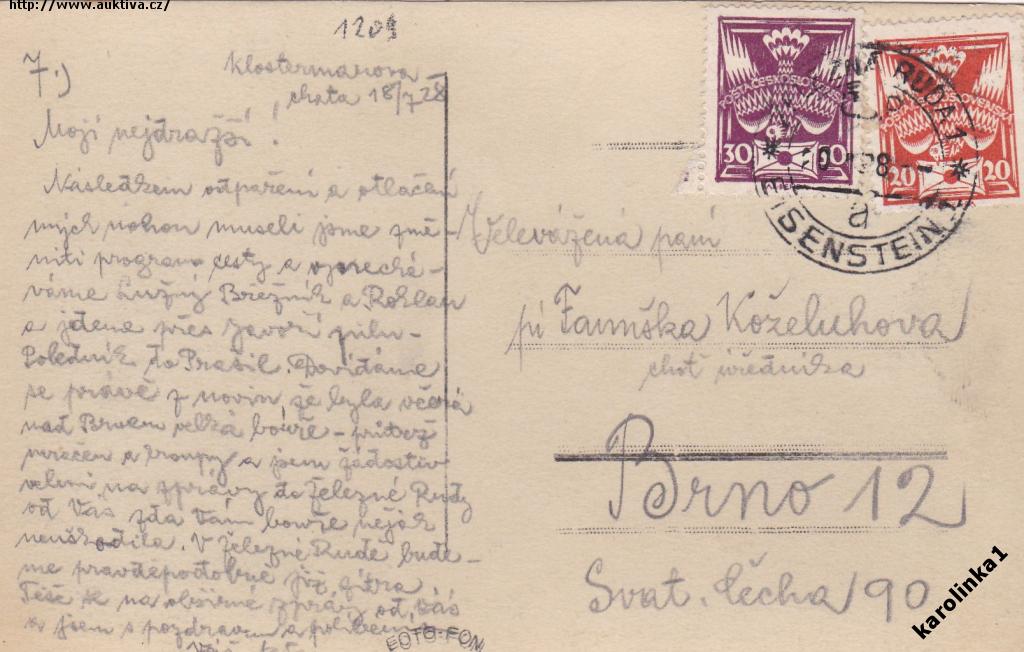 http://www.auktiva.cz/
1209
7.)
Klostermanova
chata 18/7 28
Moji nejdražší!
Následkem otpaření a otlačení
mých nohou museli jsme změ-
niti program cesty a vynechá-
váme Luzný Březník a Roklan
a jdeme přes Javoří pilu-
Poledník do Prášil. Dovídáme
se právě z novin, že byla včera
nad Brnem velká bouře - průtrž
mračen a kroupy a jsem žádostiv
velmi na zprávy do Železné Rudy
od Vás zda Vám bouře nějak
neuškodila. V Železné Rudě bude-
me pravděpodobně již zítra.
Těše se na obšírné zprávy od Vás
a jsem s pozdravem a políbením
Váš
FOTO-FON
Velevážená paní
pí Fanuška Koželuhova
choť úředníka
Brno 12
Svat. Čecha 90
POŠTA ČESKOSLOVENSKÁ
30 30
20 20
RUDA 1
EISENSTEIN 1
a
karolinka1